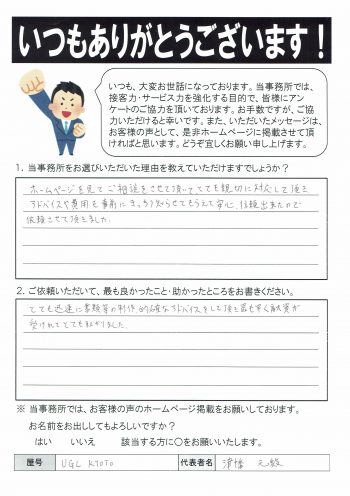 いつもありがとうございます！
いつも、大変お世話になっております。当事務所では、
接客力・サービス力を強化する目的で、皆様にアン
ケートのご協力を頂いております。お手数ですが、ご協
力いただけると幸いです。また、いただいたメッセージは、
お客様の声として、是非ホームページに掲載させて頂
ければと思います。どうぞ宜しくお願い申し上げます。
1. 当事務所をお選びいただいた理由を教えていただけますでしょうか？
ホームページを見てご相談をさせて頂いてとても親切に対応して頂き
アドバイスや費用も事前にきっちり知らせてもらえて安心、信頼出来たので
依頼させて頂きました。
2. ご依頼いただいて、最も良かったこと・助かったところをお書きください。
とても迅速に書類等の制作、的確なアドバイスをして頂き最も早く融資が
受けれてとても助かりました。
※ 当事務所では、お客様の声のホームページ掲載をお願いしております。
お名前をお出ししてもよろしいですか？
はい いいえ 該当する方に〇をお願いいたします。
屋号 UGL KYOTO 代表者名